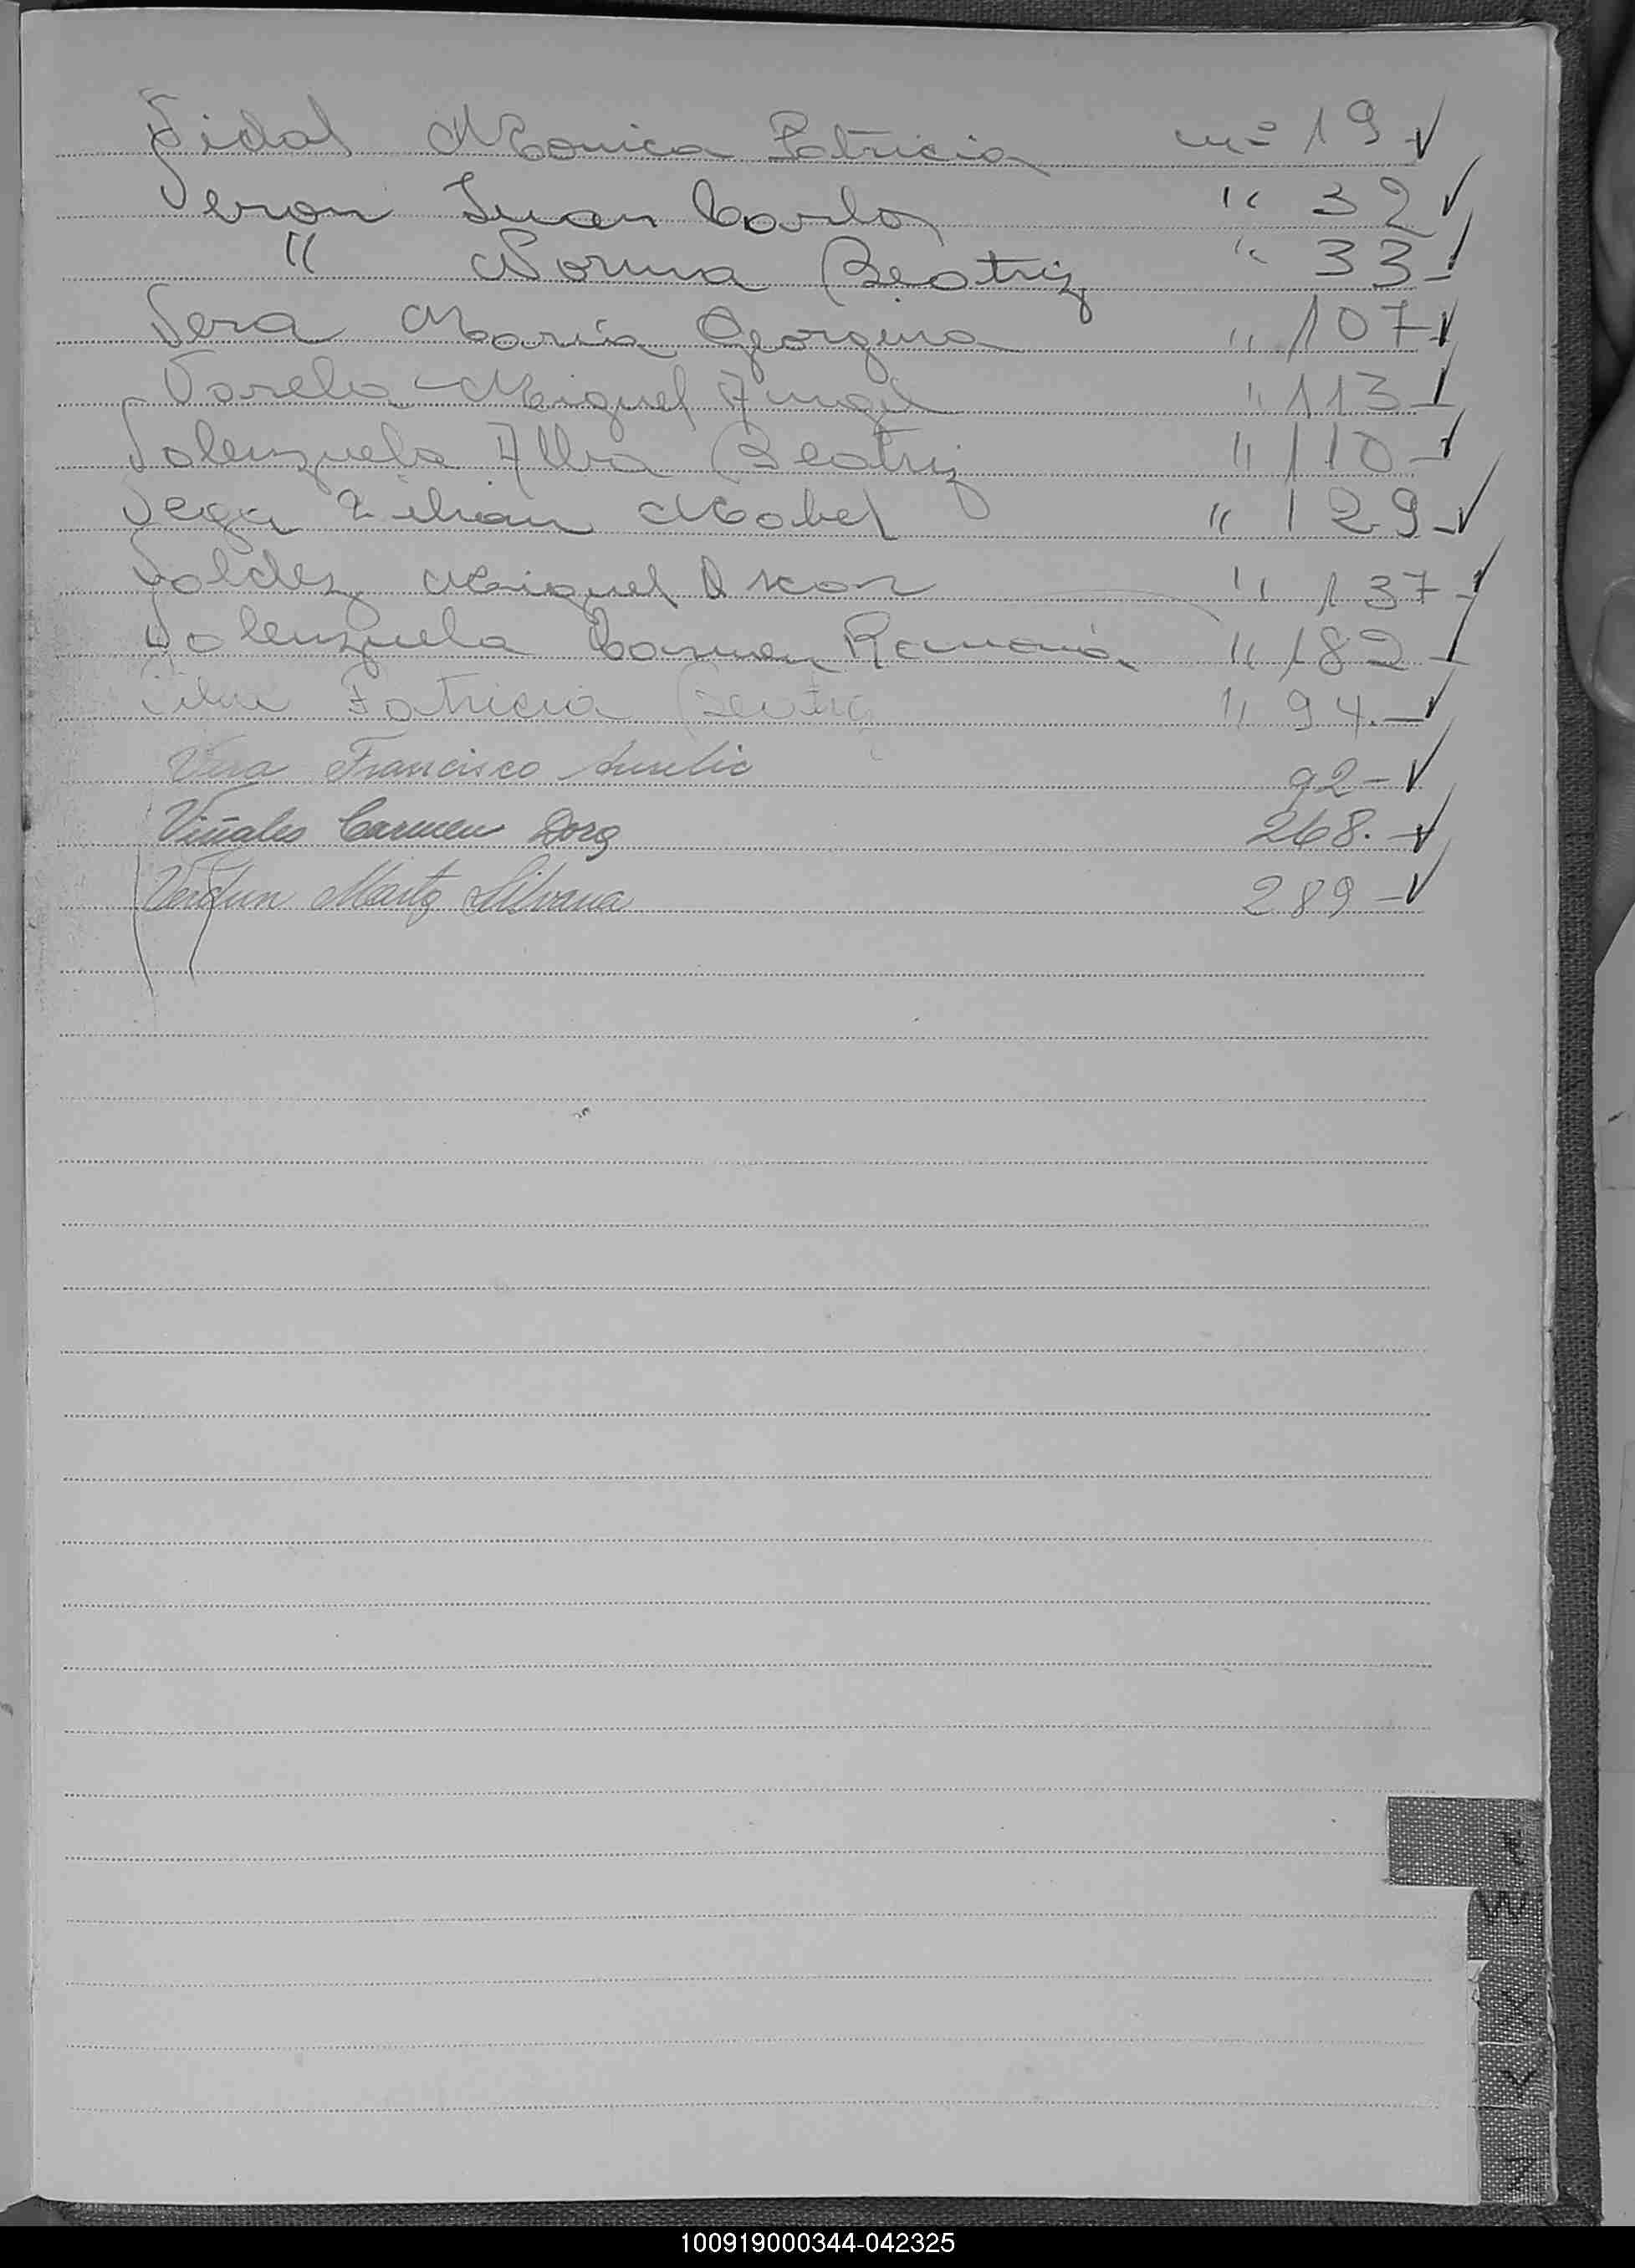 Vidal Monica Patricia nº 19
Veron Juan Carlos " 32
" Norma Beatriz " 33
Vera Maria Georgina " 107
Varela Miguel Angel " 113
Valenzuela Alba Beatriz " 110
Vega Lilian Mabel " 129
Valdez Miguel Oscar " 137
Valenzuela Carmen Ramona " 182
Patricia Beatriz " 94.
Vera Francisco Aurelio 92
Viñales Carmen Dora 268.
Verdun Marta Silvana 289
V
W
X
Y
Z
100919000344-042325